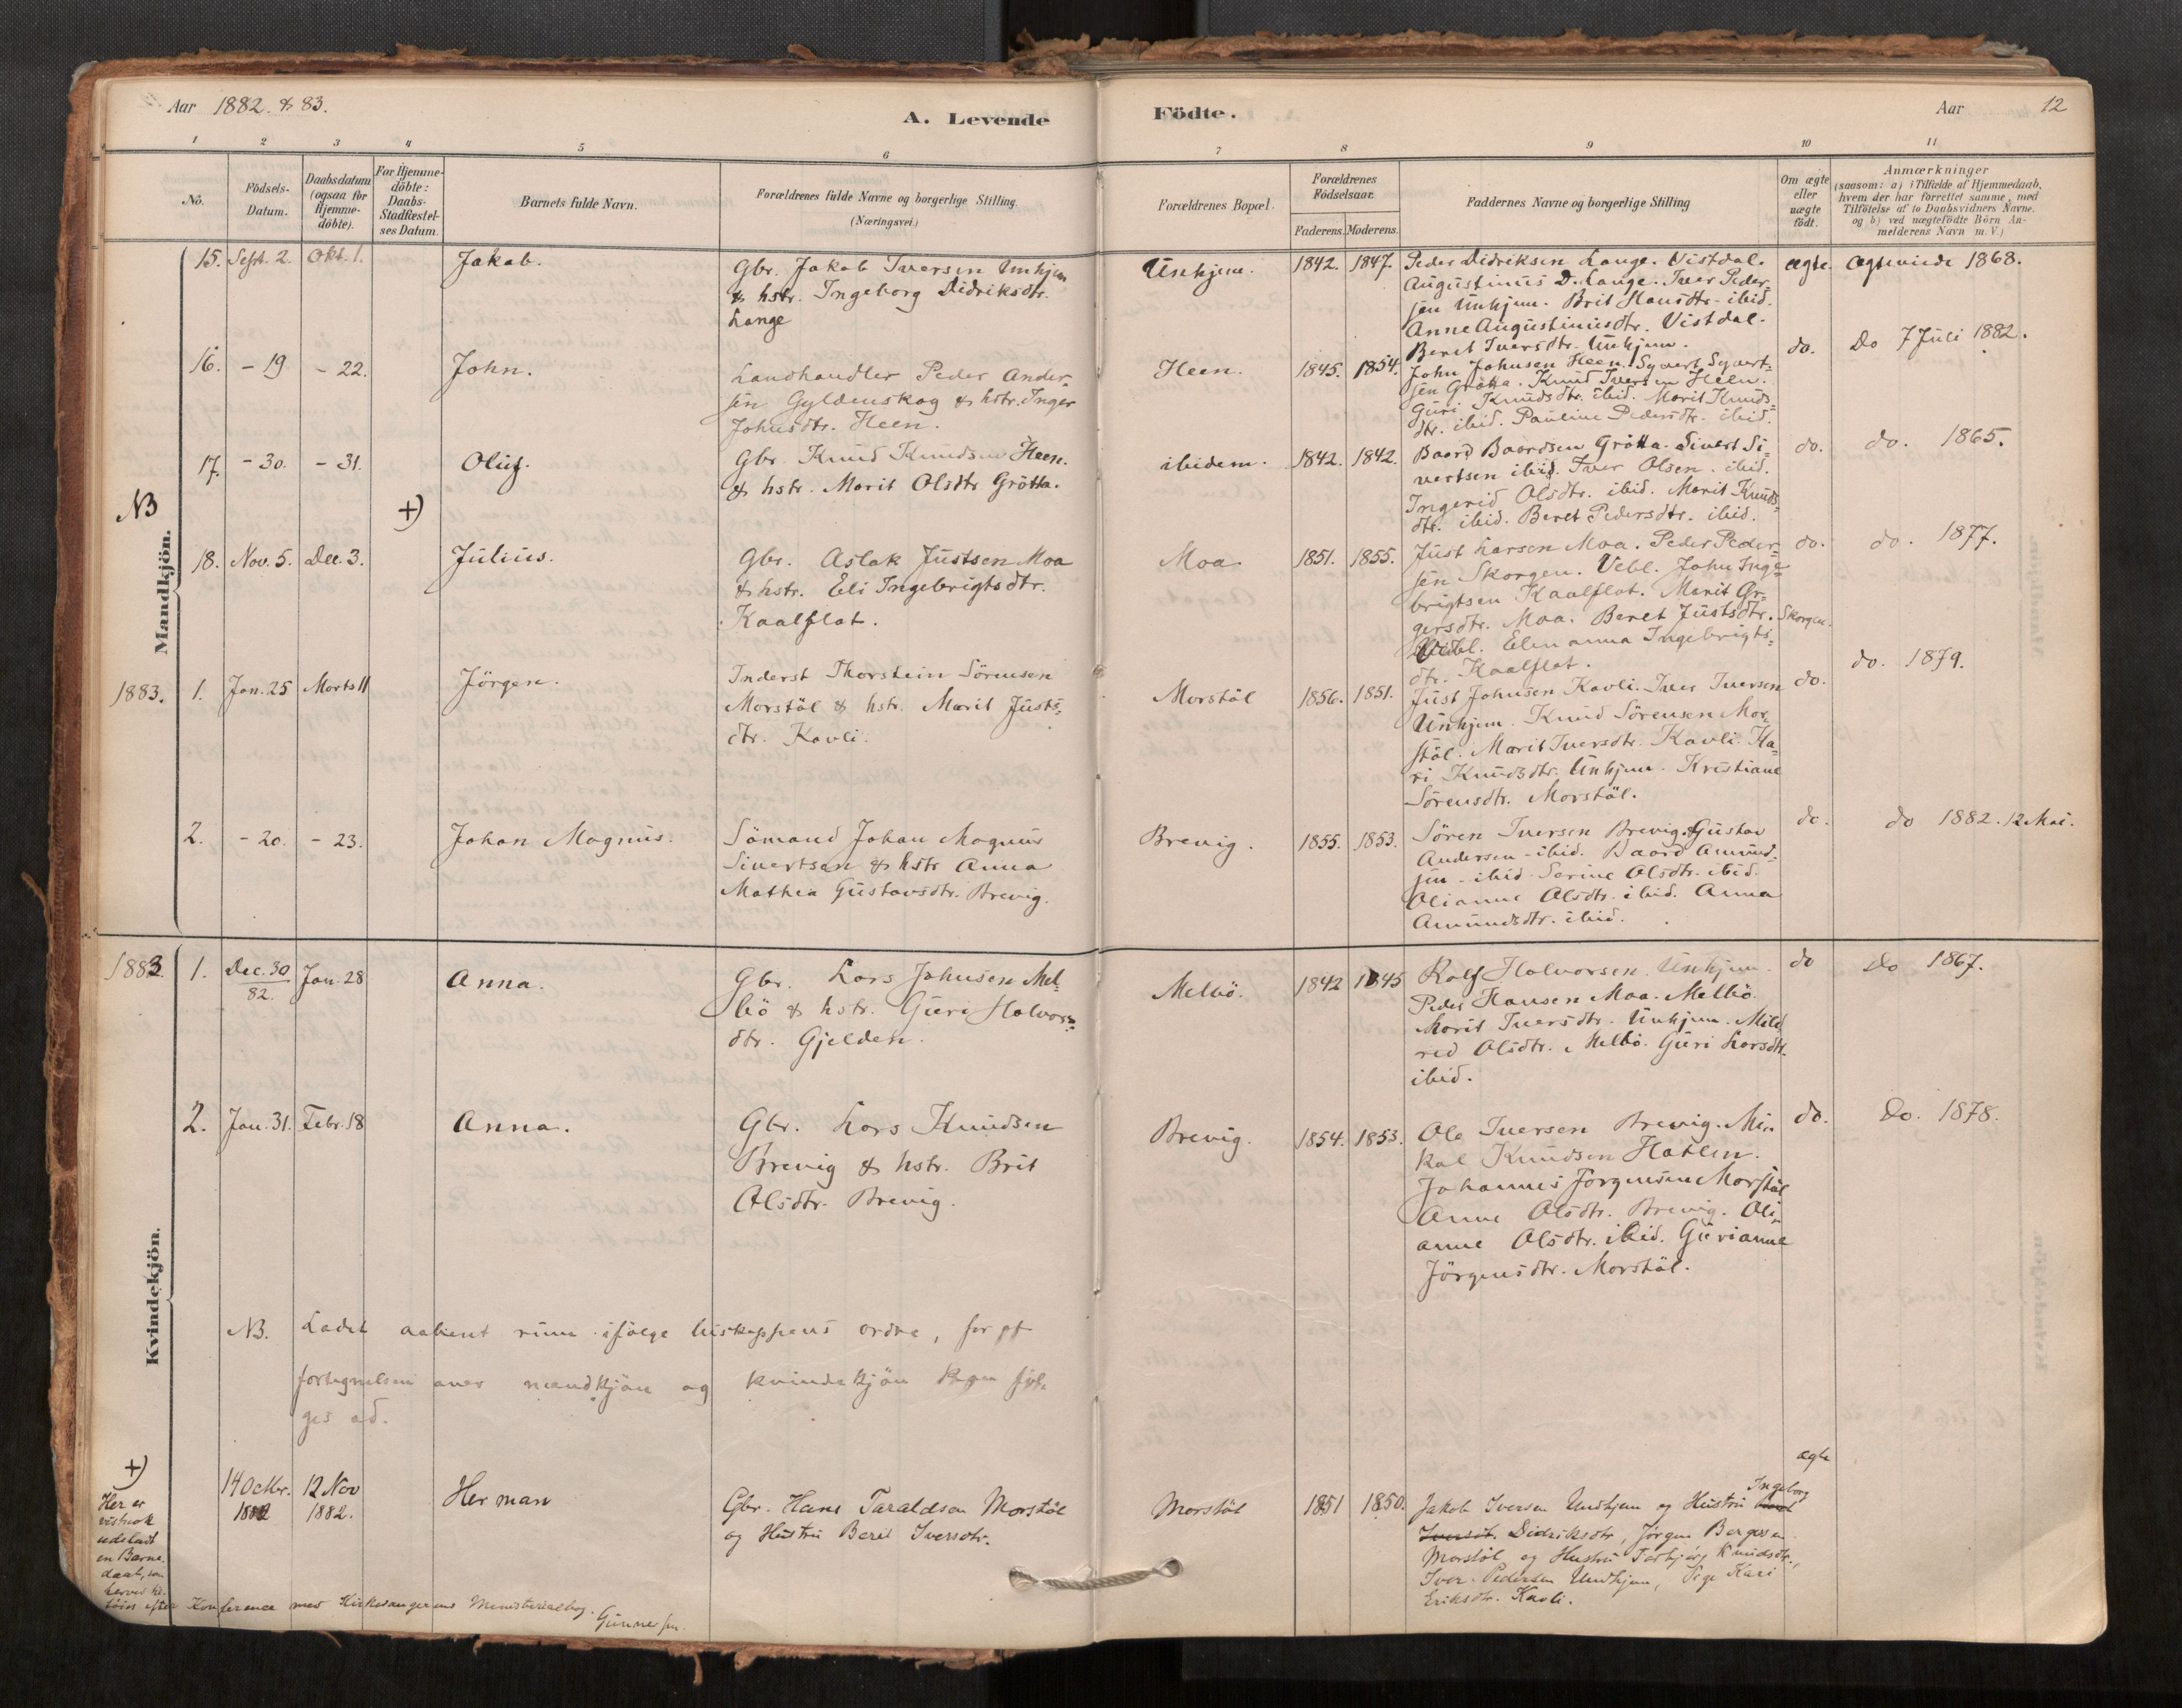 Aar 1882 & 83.
A. Levende
Födte.
Aar 12
1 2 3 4 5 6 7 8 9 10 11
No.
Födsels-
Datum.
Daabsdatum
(ogsaa for
Hjemme-
döbte).
For Hjemme-
döbte:
Daabs-
Stadfæstel-
ses Datum.
Barnets fulde Navn.
Forældrenes fulde Navne og borgerlige Stilling
(Næringsvei.)
Forældrenes Bopæl.
Forældrenes
Födselsaar.
Faderens. Moderens.
Faddernes Navne og borgerlige Stilling
Om ægte
eller
uægte
födt.
Anmærkninger
(saasom: a) i Tilfælde af Hjemmedaab,
hvem der har forrettet samme, med
Tilföielse af to Daabsvidners Navne.
og b) ved uægtefödte Börn An-
melderens Navn m. V.)
Mandkjön.
15. Sept. 2. Okt. 1. Jakob.
Gbr. Jakob Iversen Unhjem
& hstr. Ingeborg Didriksdtr.
Lange
Unhjem. 1842. 1847.
Peder Didriksen Lange. Vistdal.
Augustinus D. Lange. Iver Peder-
sen Unhjem. Brit Hansdtr. ibid.
Anne Augustinusdtr. Vistdal.
Beret Iversdtr. Unhjem.
ægte. Ægteviede 1868.
16. - 19 - 22. John.
Landhandler Peder Ander-
sen Gyldenskog & hstr. Inger
Johnsdtr. Heen.
Heen. 1845. 1854.
John Johnsen Heen. Syvert Syvert-
sen Grötta. Knud Iversen Heen.
Guri Knudsdtr. ibid. Marit Knuds-
dtr. ibid. Pauline Pedersdtr. ibid.
do. Do 7 Juli 1882.
17. - 30. - 31. Oluf.
Gbr. Knud Knudsen Heen.
& hstr. Marit Olsdtr Grötta.
ibidem. 1842. 1842.
Baard Baardsen Grötta. Sivert Si-
vertsen ibid. Iver Olsen. ibid.
Ingerid Olsdtr. ibid. Marit Knuds-
dtr. ibid. Beret Pedersdtr. ibid.
do. do. 1865.
NB
+)
18. Nov. 5. Dec. 3. Julius.
Gbr. Aslak Justsen Moa
& hstr. Eli Ingebrigtsdtr.
Kaalflat.
Moa. 1851. 1855.
Just Larsen Moa. Peder Peder-
sen Skorgen. Vebl. John Inge-
brigtsen Kaalflat. Marit Gr-
gersdtr. Moa. Beret Justsdtr. Skorgen.
Vebl. Elen anna Ingebrigts-
dtr. Kaalflat.
do. do. 1877.
1883. 1. Jan. 25 Marts 11 Jörgen.
Inderst Thorstein Sörensen
Morstöl & hstr. Marit Justs-
dtr. Kavli.
Morstöl 1856. 1851.
Just Johnsen Kavli. Iver Iversen
Unhjem. Knud Sörensen Mor-
stöl. Marit Iversdtr. Kavli. Ka-
ri Knudsdtr. Unhjem. Kristiane
Sörensdtr. Morstöl.
do. do. 1879.
2. - 20. - 23. Johan Magnus.
Sömand Johan Magnus
Sivertsen & hstr Anna
Mathea Gustavsdtr. Brevig.
Brevig. 1855. 1853.
Sören Iversen Brevig. Gustav
Andersen - ibid. Baard Amund-
sen - ibid. Serine Olsdtr. ibid.
Olianne Olsdtr. ibid. Anna
Amundsdtr. ibid.
do. do 1882. 12 Mai.
Kvindekjön.
1883. 1. Dec. 30
82. Jan. 28 Anna.
Gbr. Lars Johnsen Mel-
bö & hstr. Guri Halvors-
dtr. Gjelden.
Melbö. 1842 1845
Rolf Halvorsen Unhjem.
Peder Hansen Moa. Melbö.
Marit Iversdtr. Unhjem. Mild
red Olsdtr. Melbö. Guri Larsdtr.
ibid.
do Do 1867.
2. Jan. 31. Febr. 18 Anna.
Gbr. Lars Knudsen
Brevig & hstr. Brit
Olsdtr. Brevig.
Brevig. 1854. 1853.
Ole Iversen Brevig. Mi-
kal Knudsen Hatlen.
Johannes Jörgensen Morstöl
Anne Olsdtr. Brevig. Oli-
anne Olsdtr. ibid. Gurianne
Jörgensdtr. Morstöl.
do. Do. 1878.
NB. Ladet aabent rum ifölge biskoppens ordre, for at
fortegnelsen over mandkjön og kvindekjön kan föl-
ges ad.
+)
Her er
vistnok
udeladt
en Barne-
daab, som
herved til-
föies efter Konference med Kirkesangerens Ministerialbog.
Gunnersen.
14 Octbr. 12 Nov
1882 1882.
Herman
Gbr. Hans Taraldsen Morstöl
og Hustru Berit Iversdtr.
Morstöl 1851 1850.
ægte
Ingeborg
Jakob Iversen Undhjem og Hustru
Iversdt. Didriksdtr, Jörgen Bergersen
Morstöl og Hustru Torbjörg Knudsdtr.,
Iver Pedersen Undhjem, Pige Kari
Eriksdtr. Kavli.